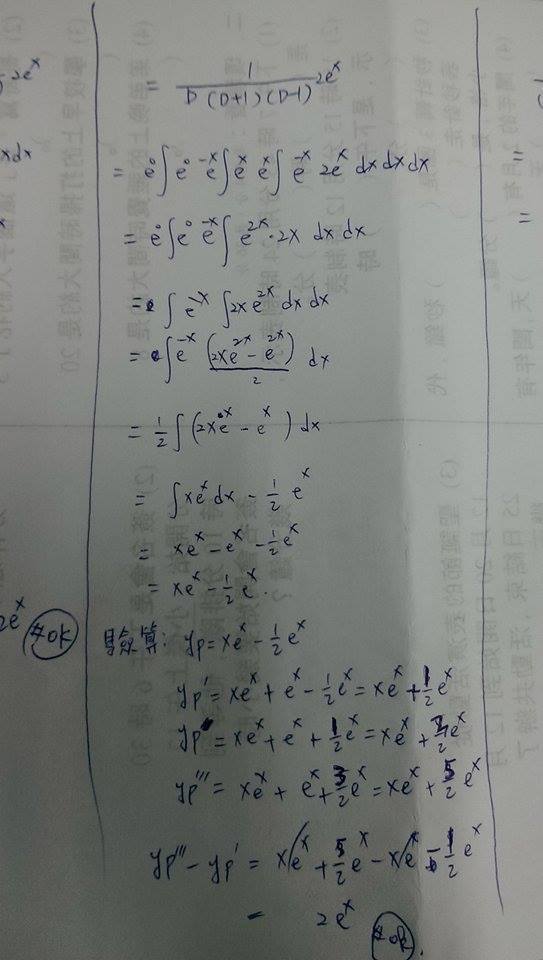 2e^x
= \frac{1}{D(D+1)(D-1)} 2e^x
xdx
= e^0 ∫ e^0 e^{-x} ∫ e^x e^x ∫ e^{-x} 2e^x dx dx dx
= e^0 ∫ e^0 e^{-x} ∫ e^{2x} · 2x dx dx
= ∫ e^{-x} ∫ 2xe^{2x} dx dx
= ∫ e^{-x} \frac{(2xe^{2x} - e^{2x})}{2} dx
= \frac{1}{2} ∫ (2xe^x - e^x) dx
= ∫ xe^x dx - \frac{1}{2} e^x
= xe^x - e^x - \frac{1}{2} e^x
= xe^x - \frac{1}{2} e^x.
2e^x #ok
驗算: yp = xe^x - \frac{1}{2} e^x
yp' = xe^x + e^x - \frac{1}{2} e^x = xe^x + \frac{1}{2} e^x
yp'' = xe^x + e^x + \frac{1}{2} e^x = xe^x + \frac{3}{2} e^x
yp''' = xe^x + e^x + \frac{3}{2} e^x = xe^x + \frac{5}{2} e^x
yp''' - yp' = xe^x + \frac{5}{2} e^x - xe^x - \frac{1}{2} e^x
= 2e^x #ok.